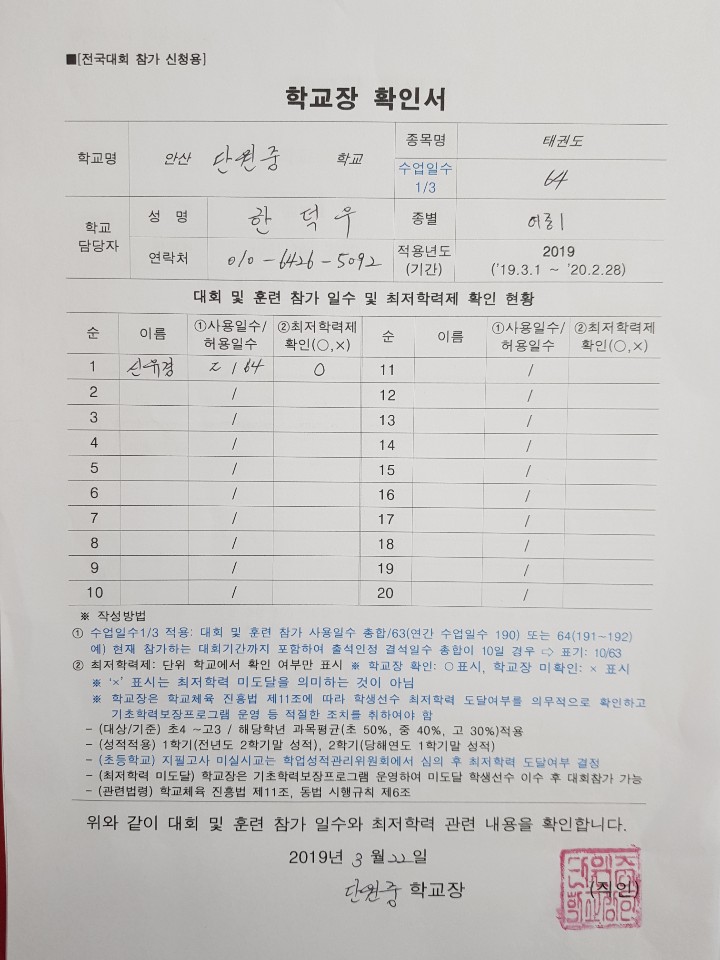 ■[전국대회 참가 신청용]
학교장 확인서
학교명 안산 단원중 학교 종목명 태권도
수업일수 1/3 64
학교 담당자 성 명 한덕우 종별
연락처 010-6426-5092 적용년도 (기간) 2019 ('19.3.1 ~ '20.2.28)
대회 및 훈련 참가 일수 및 최저학력제 확인 현황
순 이름 ①사용일수/허용일수 ②최저학력제 확인(○,×) 순 이름 ①사용일수/허용일수 ②최저학력제 확인(○,×)
1 신유경 2 / 64 ○ 11 /
2 / 12 /
3 / 13 /
4 / 14 /
5 / 15 /
6 / 16 /
7 / 17 /
8 / 18 /
9 / 19 /
10 / 20 /
※ 작성방법
① 수업일수1/3 적용: 대회 및 훈련 참가 사용일수 총합/63(연간 수업일수 190) 또는 64(191~192)
예) 현재 참가하는 대회기간까지 포함하여 출석인정 결석일수 총합이 10일 경우 ⇨ 표기: 10/63
② 최저학력제: 단위 학교에서 확인 여부만 표시 ※ 학교장 확인: ○표시, 학교장 미확인: × 표시
※ '×' 표시는 최저학력 미도달을 의미하는 것이 아님
※ 학교장은 학교체육 진흥법 제11조에 따라 학생선수 최저학력 도달여부를 의무적으로 확인하고
기초학력보장프로그램 운영 등 적절한 조치를 취하여야 함
- (대상/기준) 초4 ~고3 / 해당학년 과목평균(초 50%, 중 40%, 고 30%)적용
- (성적적용) 1학기(전년도 2학기말 성적), 2학기(당해연도 1학기말 성적)
- (초등학교) 지필고사 미실시교는 학업성적관리위원회에서 심의 후 최저학력 도달여부 결정
- (최저학력 미도달) 학교장은 기초학력보장프로그램 운영하여 미도달 학생선수 이수 후 대회참가 가능
- (관련법령) 학교체육 진흥법 제11조, 동법 시행규칙 제6조
위와 같이 대회 및 훈련 참가 일수와 최저학력 관련 내용을 확인합니다.
2019년 3 월 22 일
단원중 학교장 (직인)